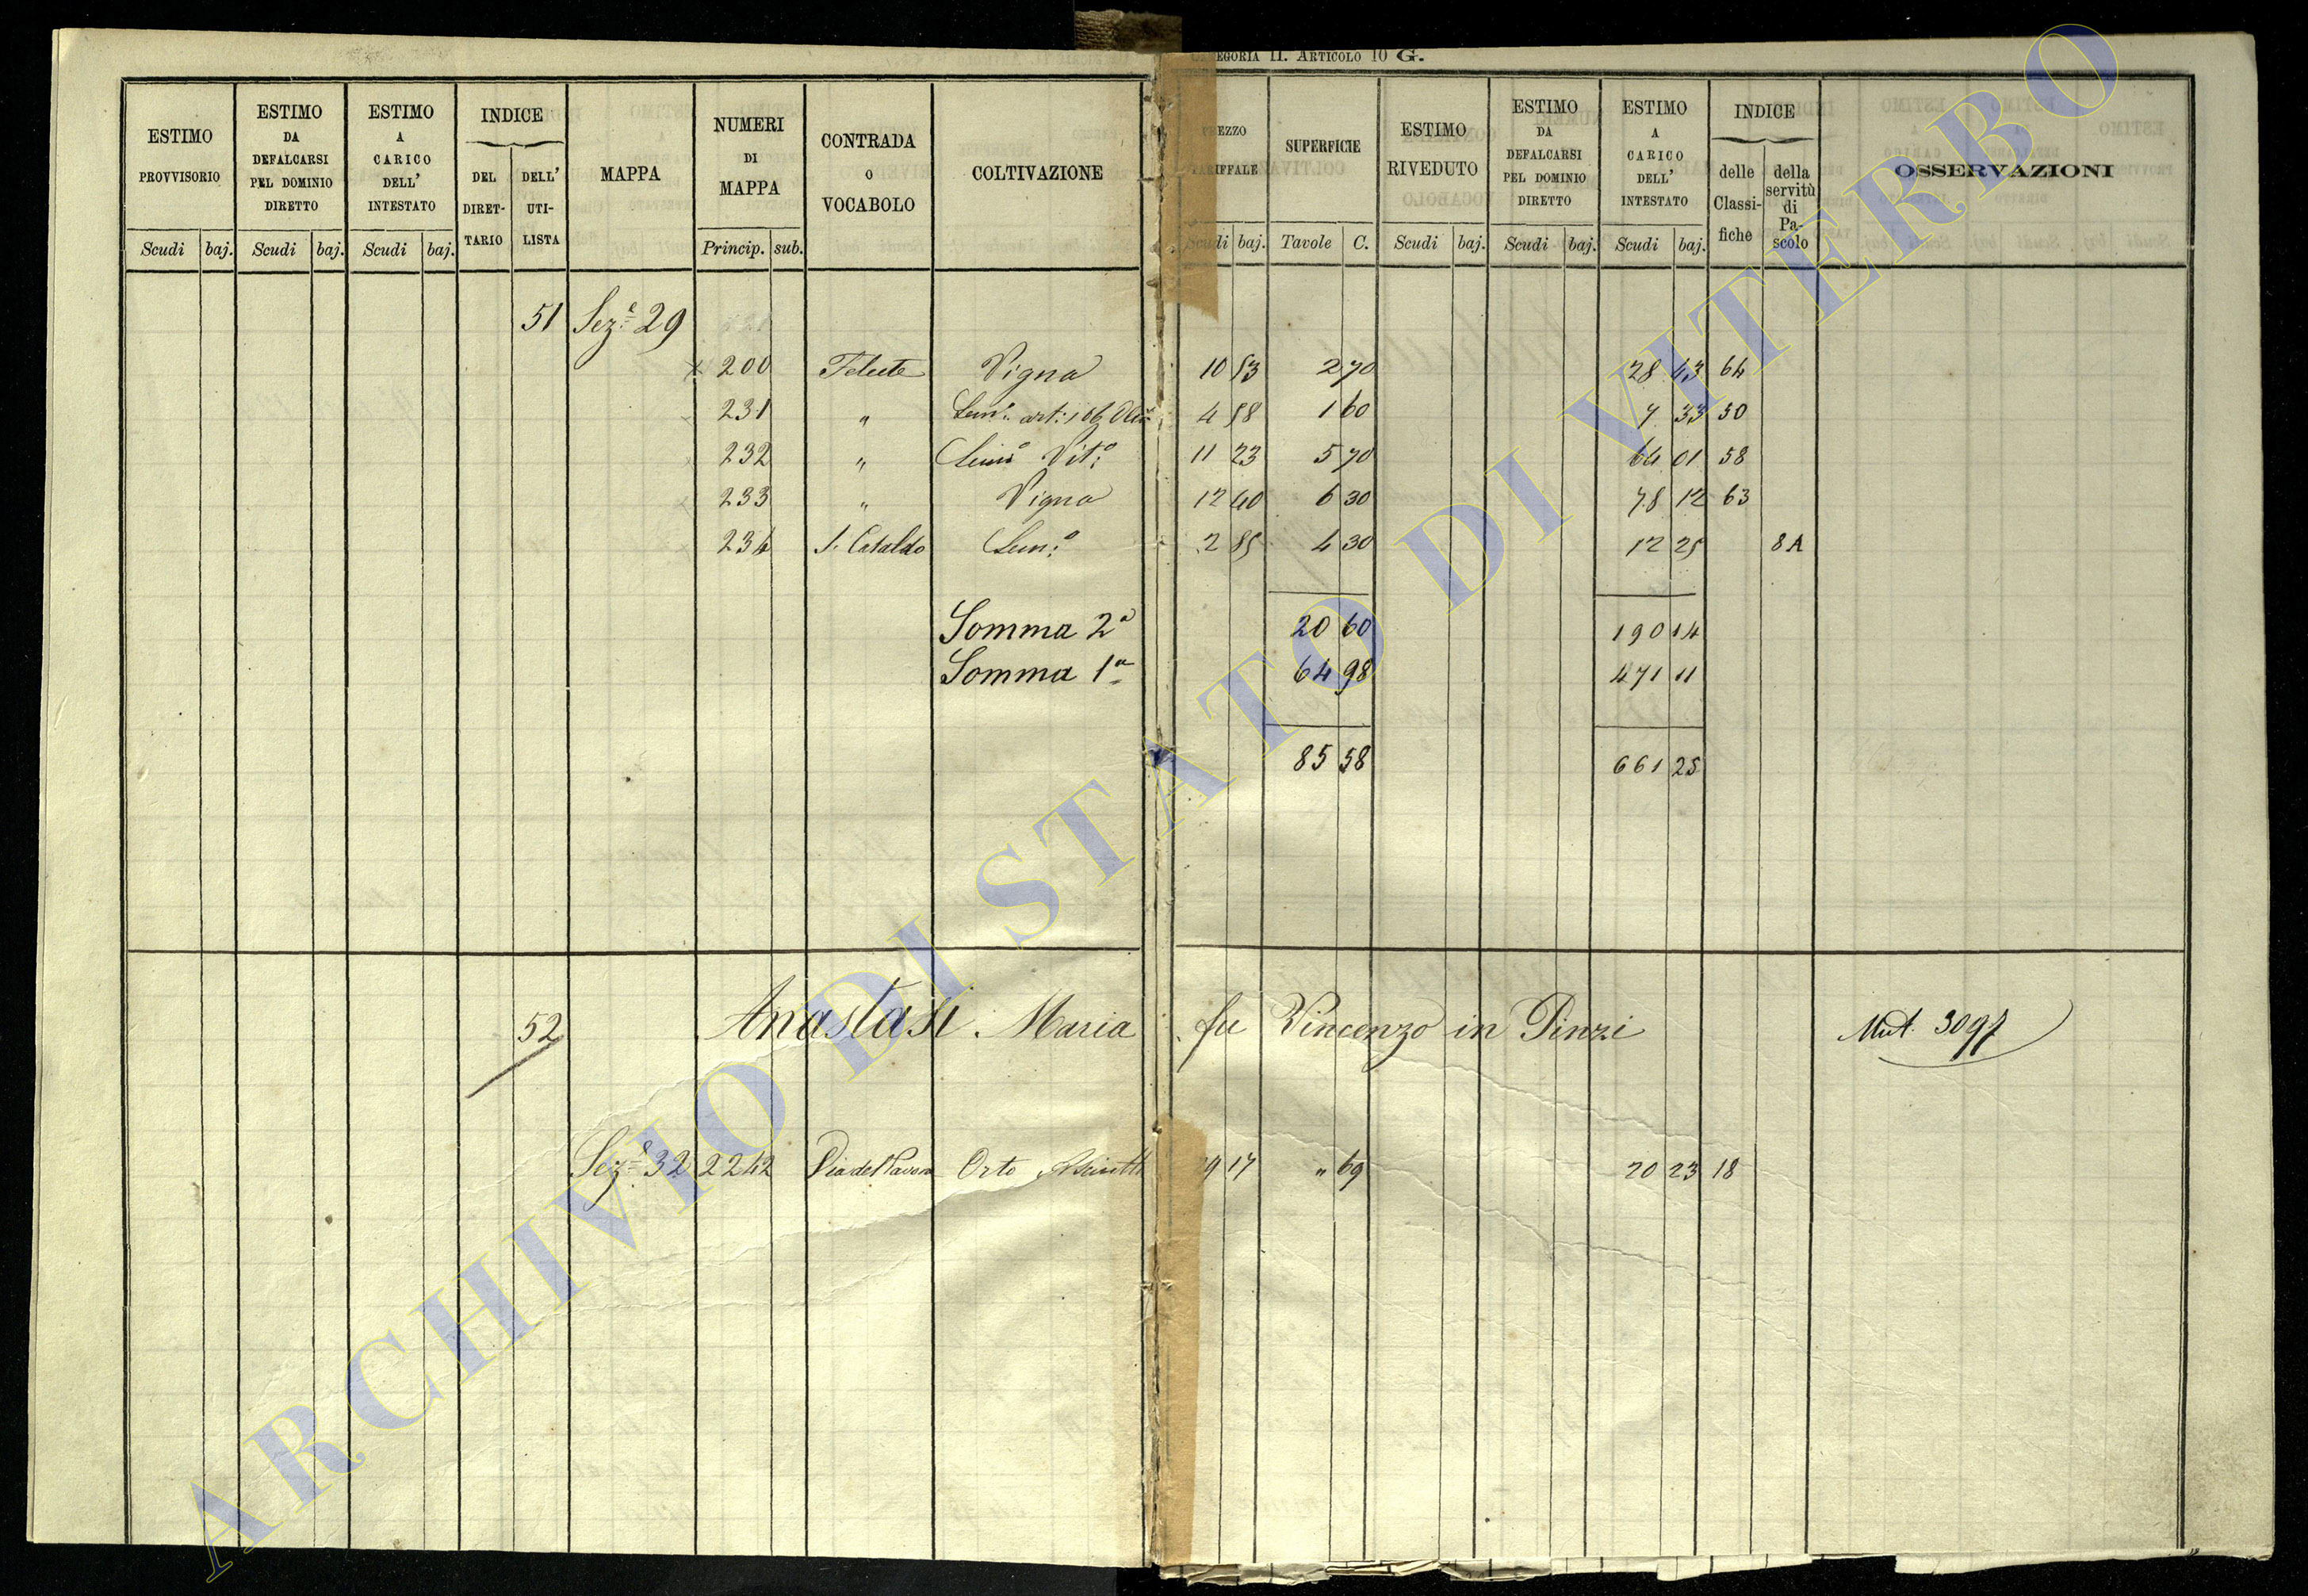 CATEGORIA II. ARTICOLO 10 G.
ESTIMO PROVVISORIO Scudi baj.
ESTIMO DA DEFALCARSI PEL DOMINIO DIRETTO Scudi baj.
ESTIMO A CARICO DELL' INTESTATO Scudi baj.
INDICE DEL DIRET-TARIO DELL' UTI-LISTA
MAPPA
NUMERI DI MAPPA Princip. sub.
CONTRADA O VOCABOLO
COLTIVAZIONE
PREZZO TARIFFALE Scudi baj.
SUPERFICIE Tavole C.
ESTIMO RIVEDUTO Scudi baj.
ESTIMO DA DEFALCARSI PEL DOMINIO DIRETTO Scudi baj.
ESTIMO A CARICO DELL' INTESTATO Scudi baj.
INDICE delle Classi-fiche della servitù di Pa-scolo
OSSERVAZIONI
51 Sez.e 29
200 Vigna 10 53 2 70 28 43 64
231 " 4 58 1 60 7 33 50
232 " Vit.o 11 23 5 70 64 01 58
233 " Vigna 12 40 6 30 78 12 63
234 S. Cataldo Sem.o 2 85 4 30 12 25 8A
Somma 2a 20 60 190 14
Somma 1a 64 98 471 11
85 58 661 25
52 Anastasi Maria fu Vincenzo in Pinzi Mut. 3097
Sez.e 32 2242 Orto 17 " 69 20 23 18
ARCHIVIO DI STATO DI VITERBO